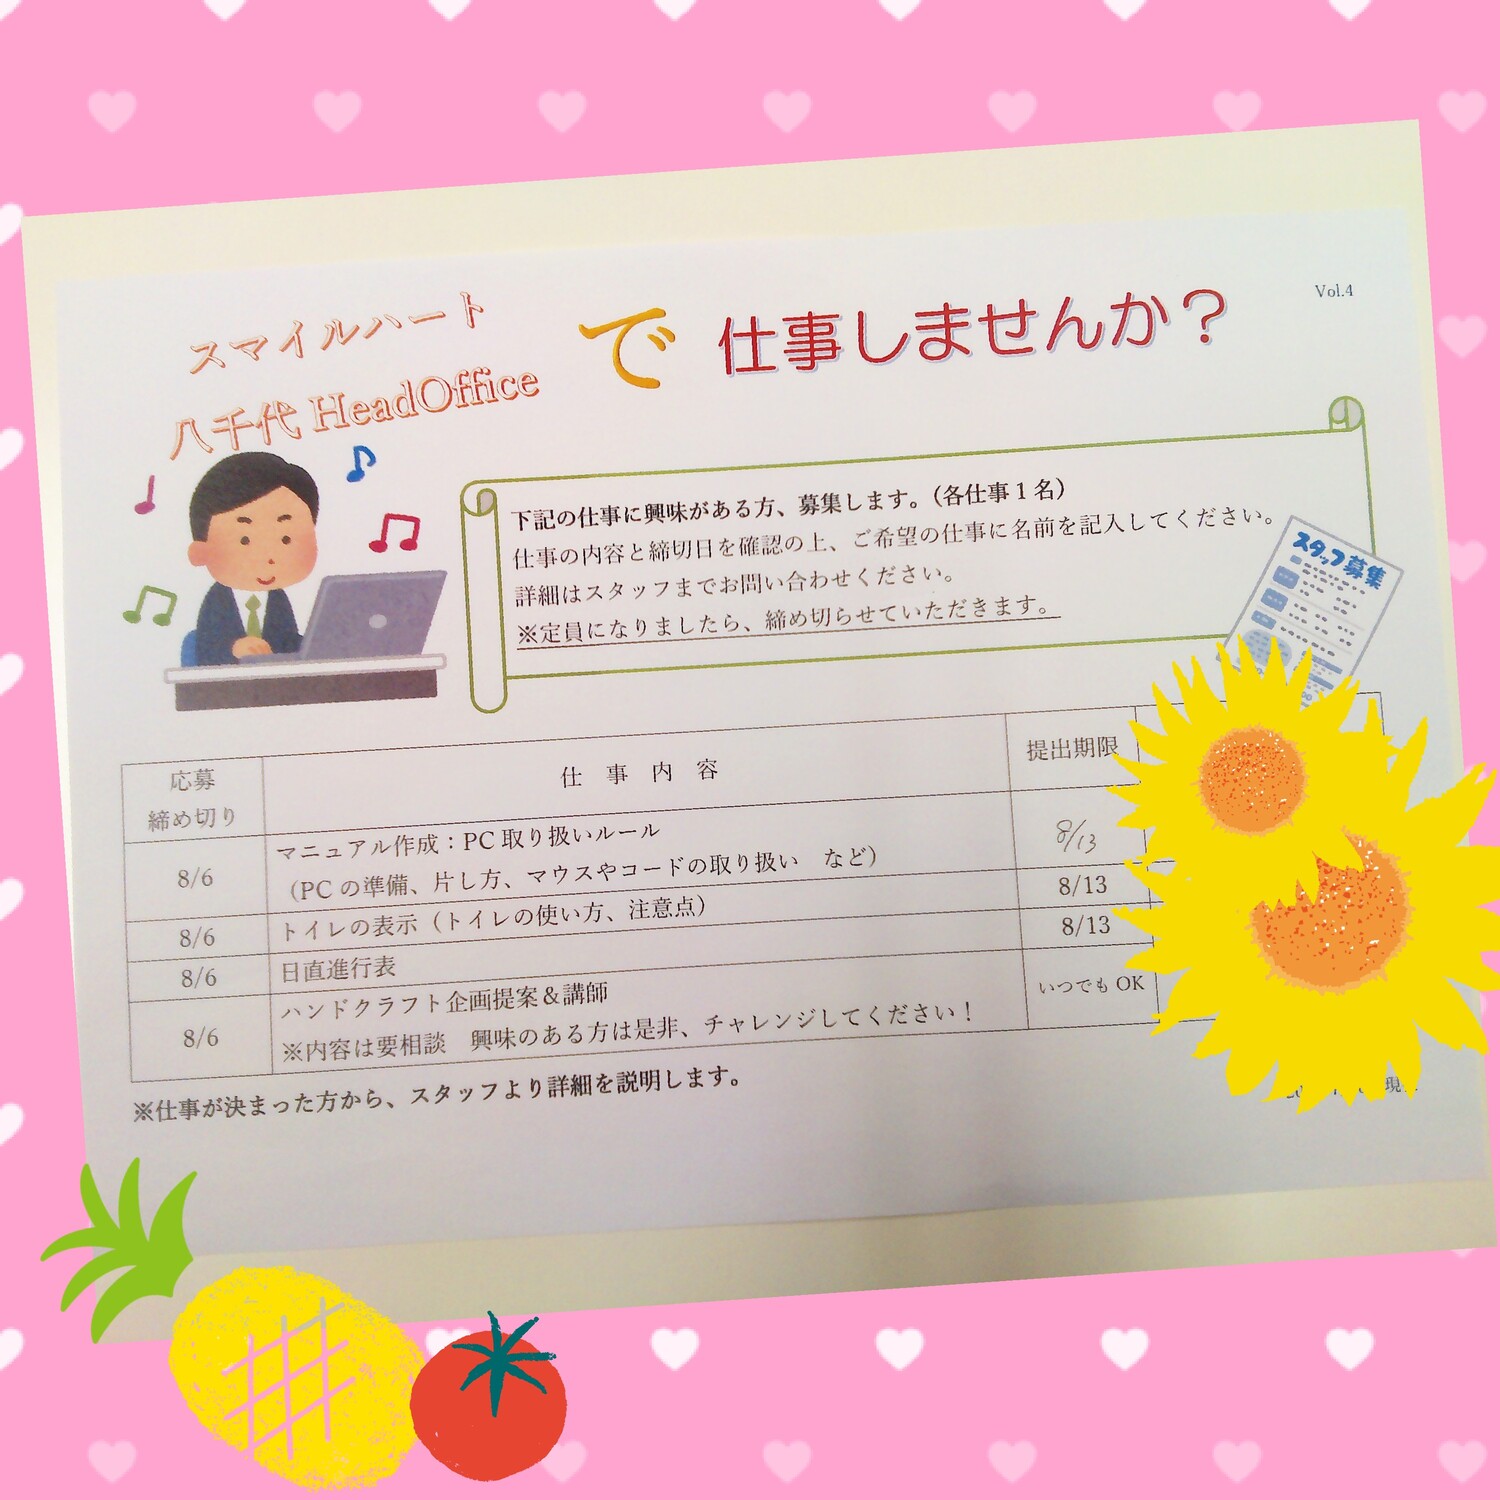 Vol.4
スマイルハート
八千代 HeadOffice
で
仕事しませんか？
下記の仕事に興味がある方、募集します。（各仕事１名）
仕事の内容と締切日を確認の上、ご希望の仕事に名前を記入してください。
詳細はスタッフまでお問い合わせください。
※定員になりましたら、締め切らせていただきます。
スタッフ募集
応募
締め切り
仕 事 内 容
提出期限
8/6
マニュアル作成：PC 取り扱いルール
（PC の準備、片し方、マウスやコードの取り扱い　など）
8/13
8/6
トイレの表示（トイレの使い方、注意点）
8/13
8/6
日直進行表
8/13
8/6
ハンドクラフト企画提案＆講師
※内容は要相談　興味のある方は是非、チャレンジしてください！
いつでも OK
※仕事が決まった方から、スタッフより詳細を説明します。
現